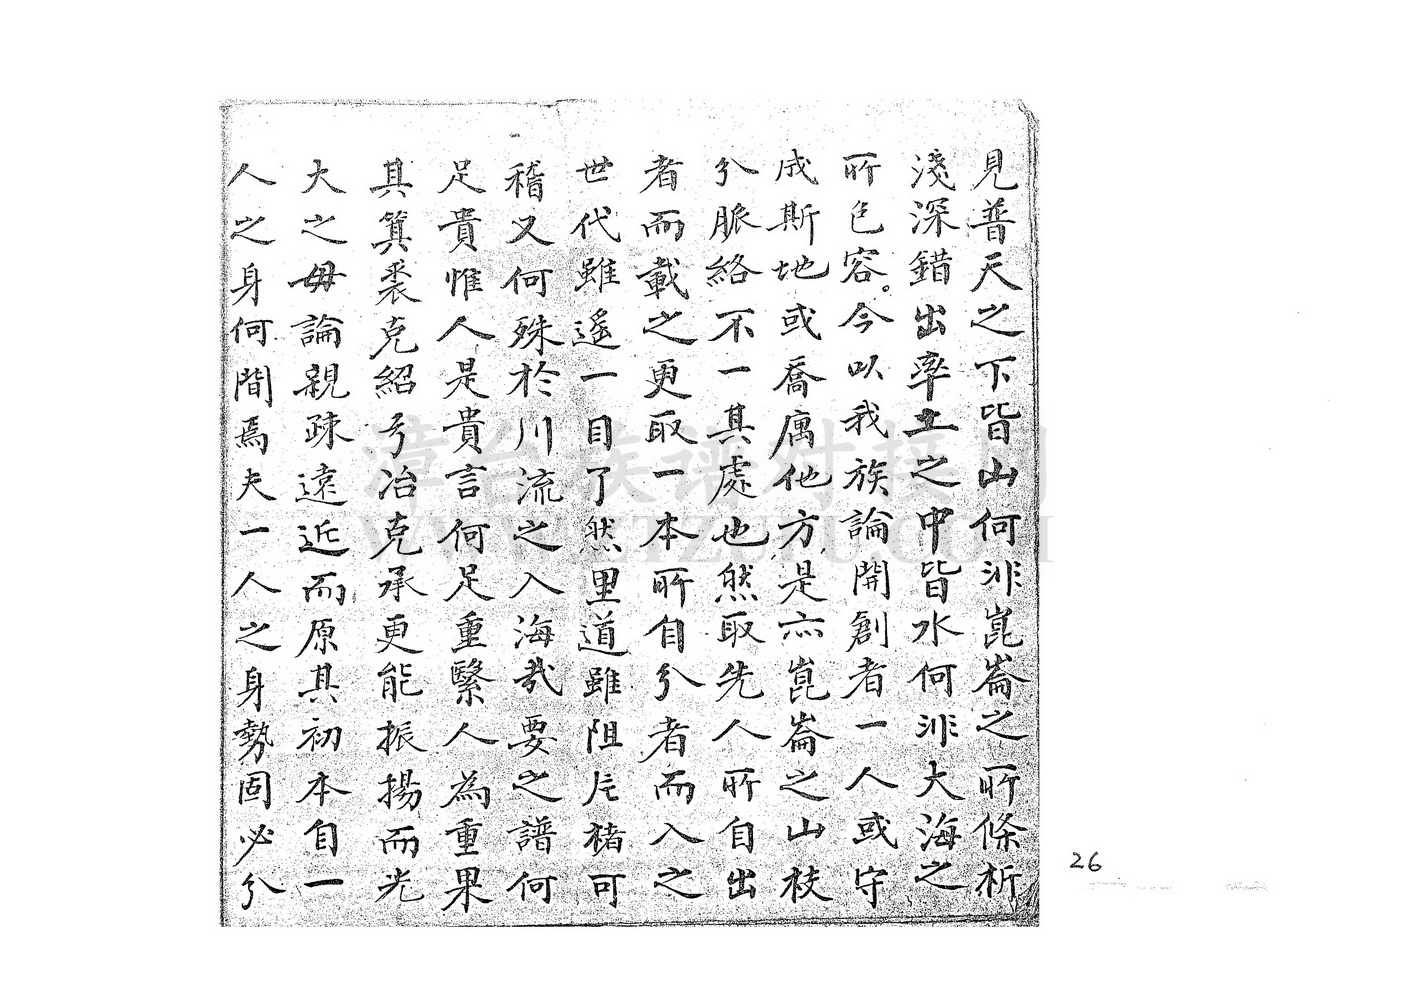 見普天之下皆山何非崑崙之所條析
淺深錯出率土之中皆水何非大海之
所包容。今以我族論開創者一人或守
成斯地或喬寓他方是亦崑崙之山枝
分脈絡不一其處也然取先人所自出
者而載之更取一本所自分者而入之
世代雖遙一目了然里道雖阻片楮可
稽又何殊於川流之入海哉要之譜何
足貴惟人是貴言何足重緊人為重果
其箕裘克紹弓冶克承更能振揚而光
大之毋論親疎遠近而原其初本自一
人之身何間焉夫一人之身勢固必分
26
漳台族谱对接网
WWW.ZTZUPU.COM